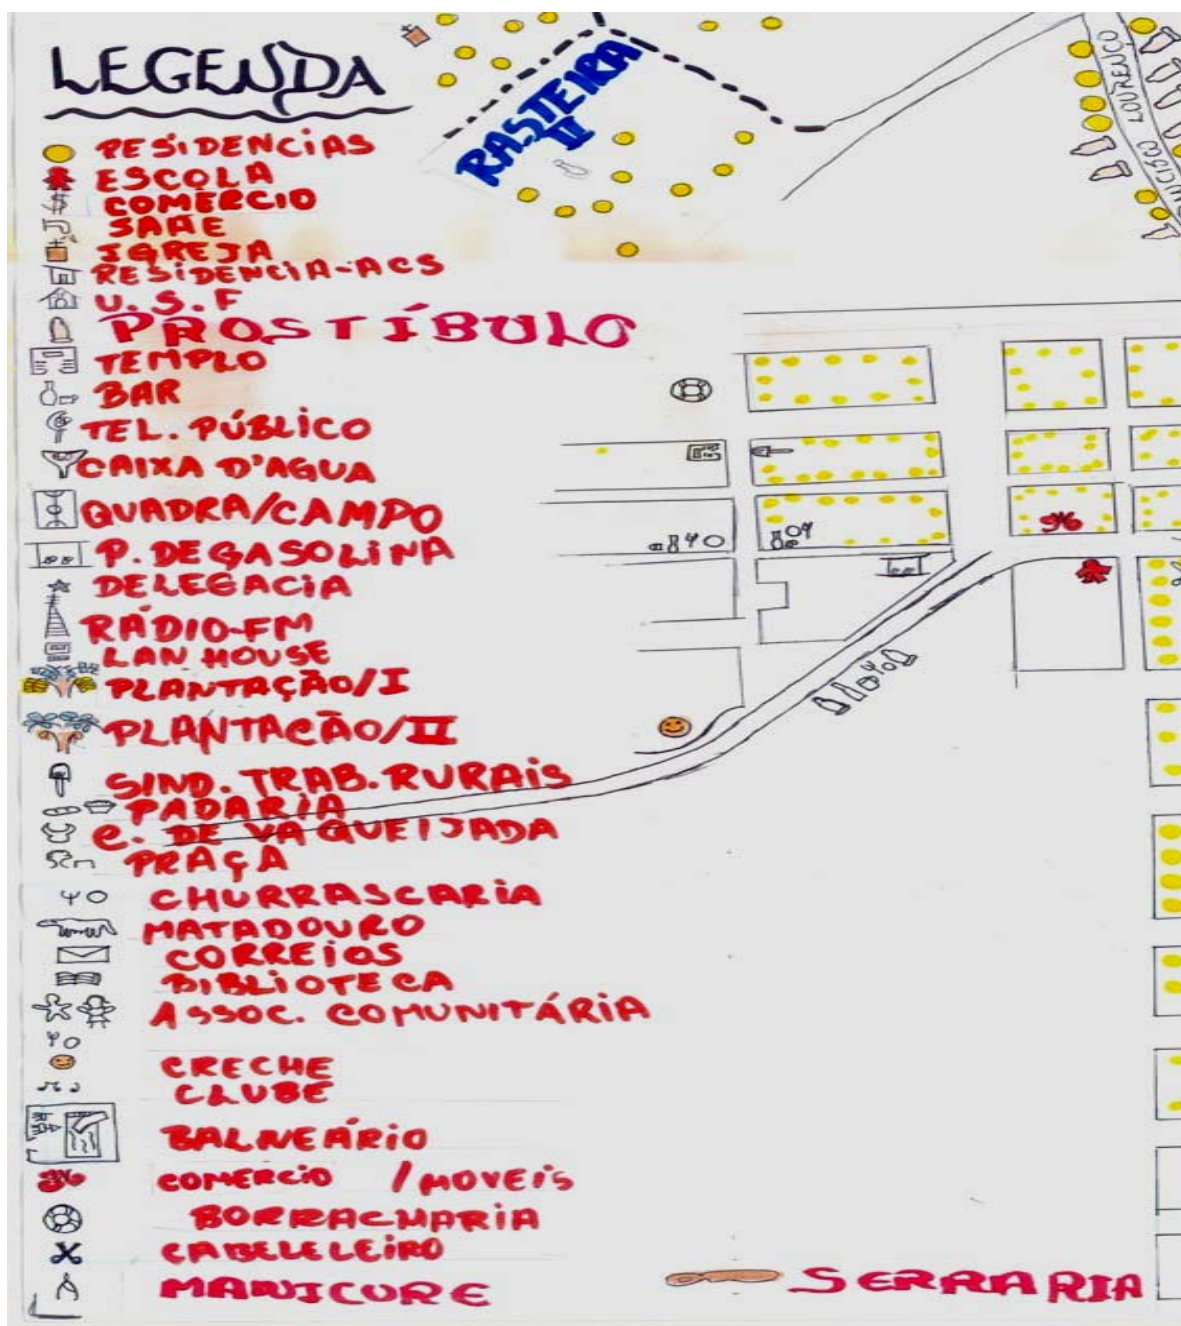 LEGENDA
RESIDENCIAS
ESCOLA
COMERCIO
SAAE
IGREJA
RESIDENCIA-ACS
U.S.F
PROSTÍBULO
TEMPLO
BAR
TEL. PÚBLICO
CAIXA D'AGUA
QUADRA/CAMPO
P. DE GASOLINA
DELEGACIA
RÁDIO-FM
LAN HOUSE
PLANTAÇÃO/I
PLANTAÇÃO/II
SIND. TRAB. RURAIS
PADARIA
C. DE VAQUEIJADA
PRAÇA
CHURRASCARIA
MATADOURO
CORREIOS
BIBLIOTECA
ASSOC. COMUNITÁRIA
CRECHE
CLUBE
BALNEÁRIO
COMERCIO / MOVEIS
BORRACHARIA
CABELELEIRO
MANICURE
RASTEIRA
II
LOURENÇO
SERRARIA